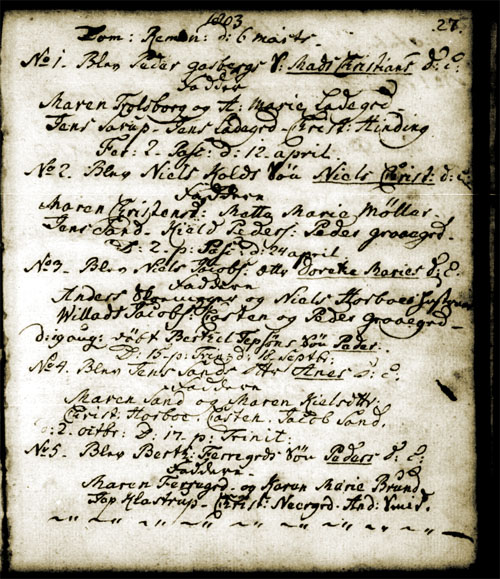 1803
28.
Dom: Remin: d: 6 marts.
No 1. Blev Peder gasbergs S: Mads Christians d: C:
Faddere
Maren Folsborg og A: Marie Ladegrd
Jens Torup - Jens Ladegrd - Christ: Hinding
Fer: 2. Pasc: d: 12 april.
No 2. Blev Niels Holds Søn Niels Christ: d: C.
Faddern
Maren Christensd: Mette Marie Møller
Jens Sand - Kield Peders: Peder graaegrd -
D: 2. p: Pasc: d: 24 april
No 3 - Blev Niels Jacobs: Dtr Dorethe Maries d: C.
Faddern
Anders og Niels Horboes Hustruer
Willads Jacobs: Casten og Peder graaegrd -
d: 19 aug: døbt Bertel Jepsøns Søn Peder.
D: 15. p: Trinit: d: 18 Septbr:
No 4. Blev Jens Sands Dtr Anes d: C:
Faddern
Maren Sand og Maren Kielsdtr:
Christ: Horboe, Casten, Jacob Sand.
d: 2. octbr: D: 17. p: Trinit:
No 5 - Blev Berth: Ferregrds Søn Peders d: C:
Faddern -
Maren Ferregrd - og Karen Marie Brund
Jep Klastrup - Christ: Neergrd. And: Smed.